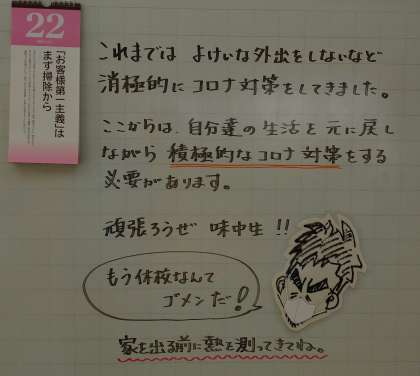 22
「お客様第一主義」は
まず掃除から
これまでは よけいな外出をしないなど
消極的に コロナ対策をしてきました。
ここからは、自分達の生活を元に戻し
ながら 積極的なコロナ対策をする
必要があります。
頑張ろうぜ 味中生!!
もう休校なんて
ゴメンだ!
家を出る前に熱を測ってきてね。